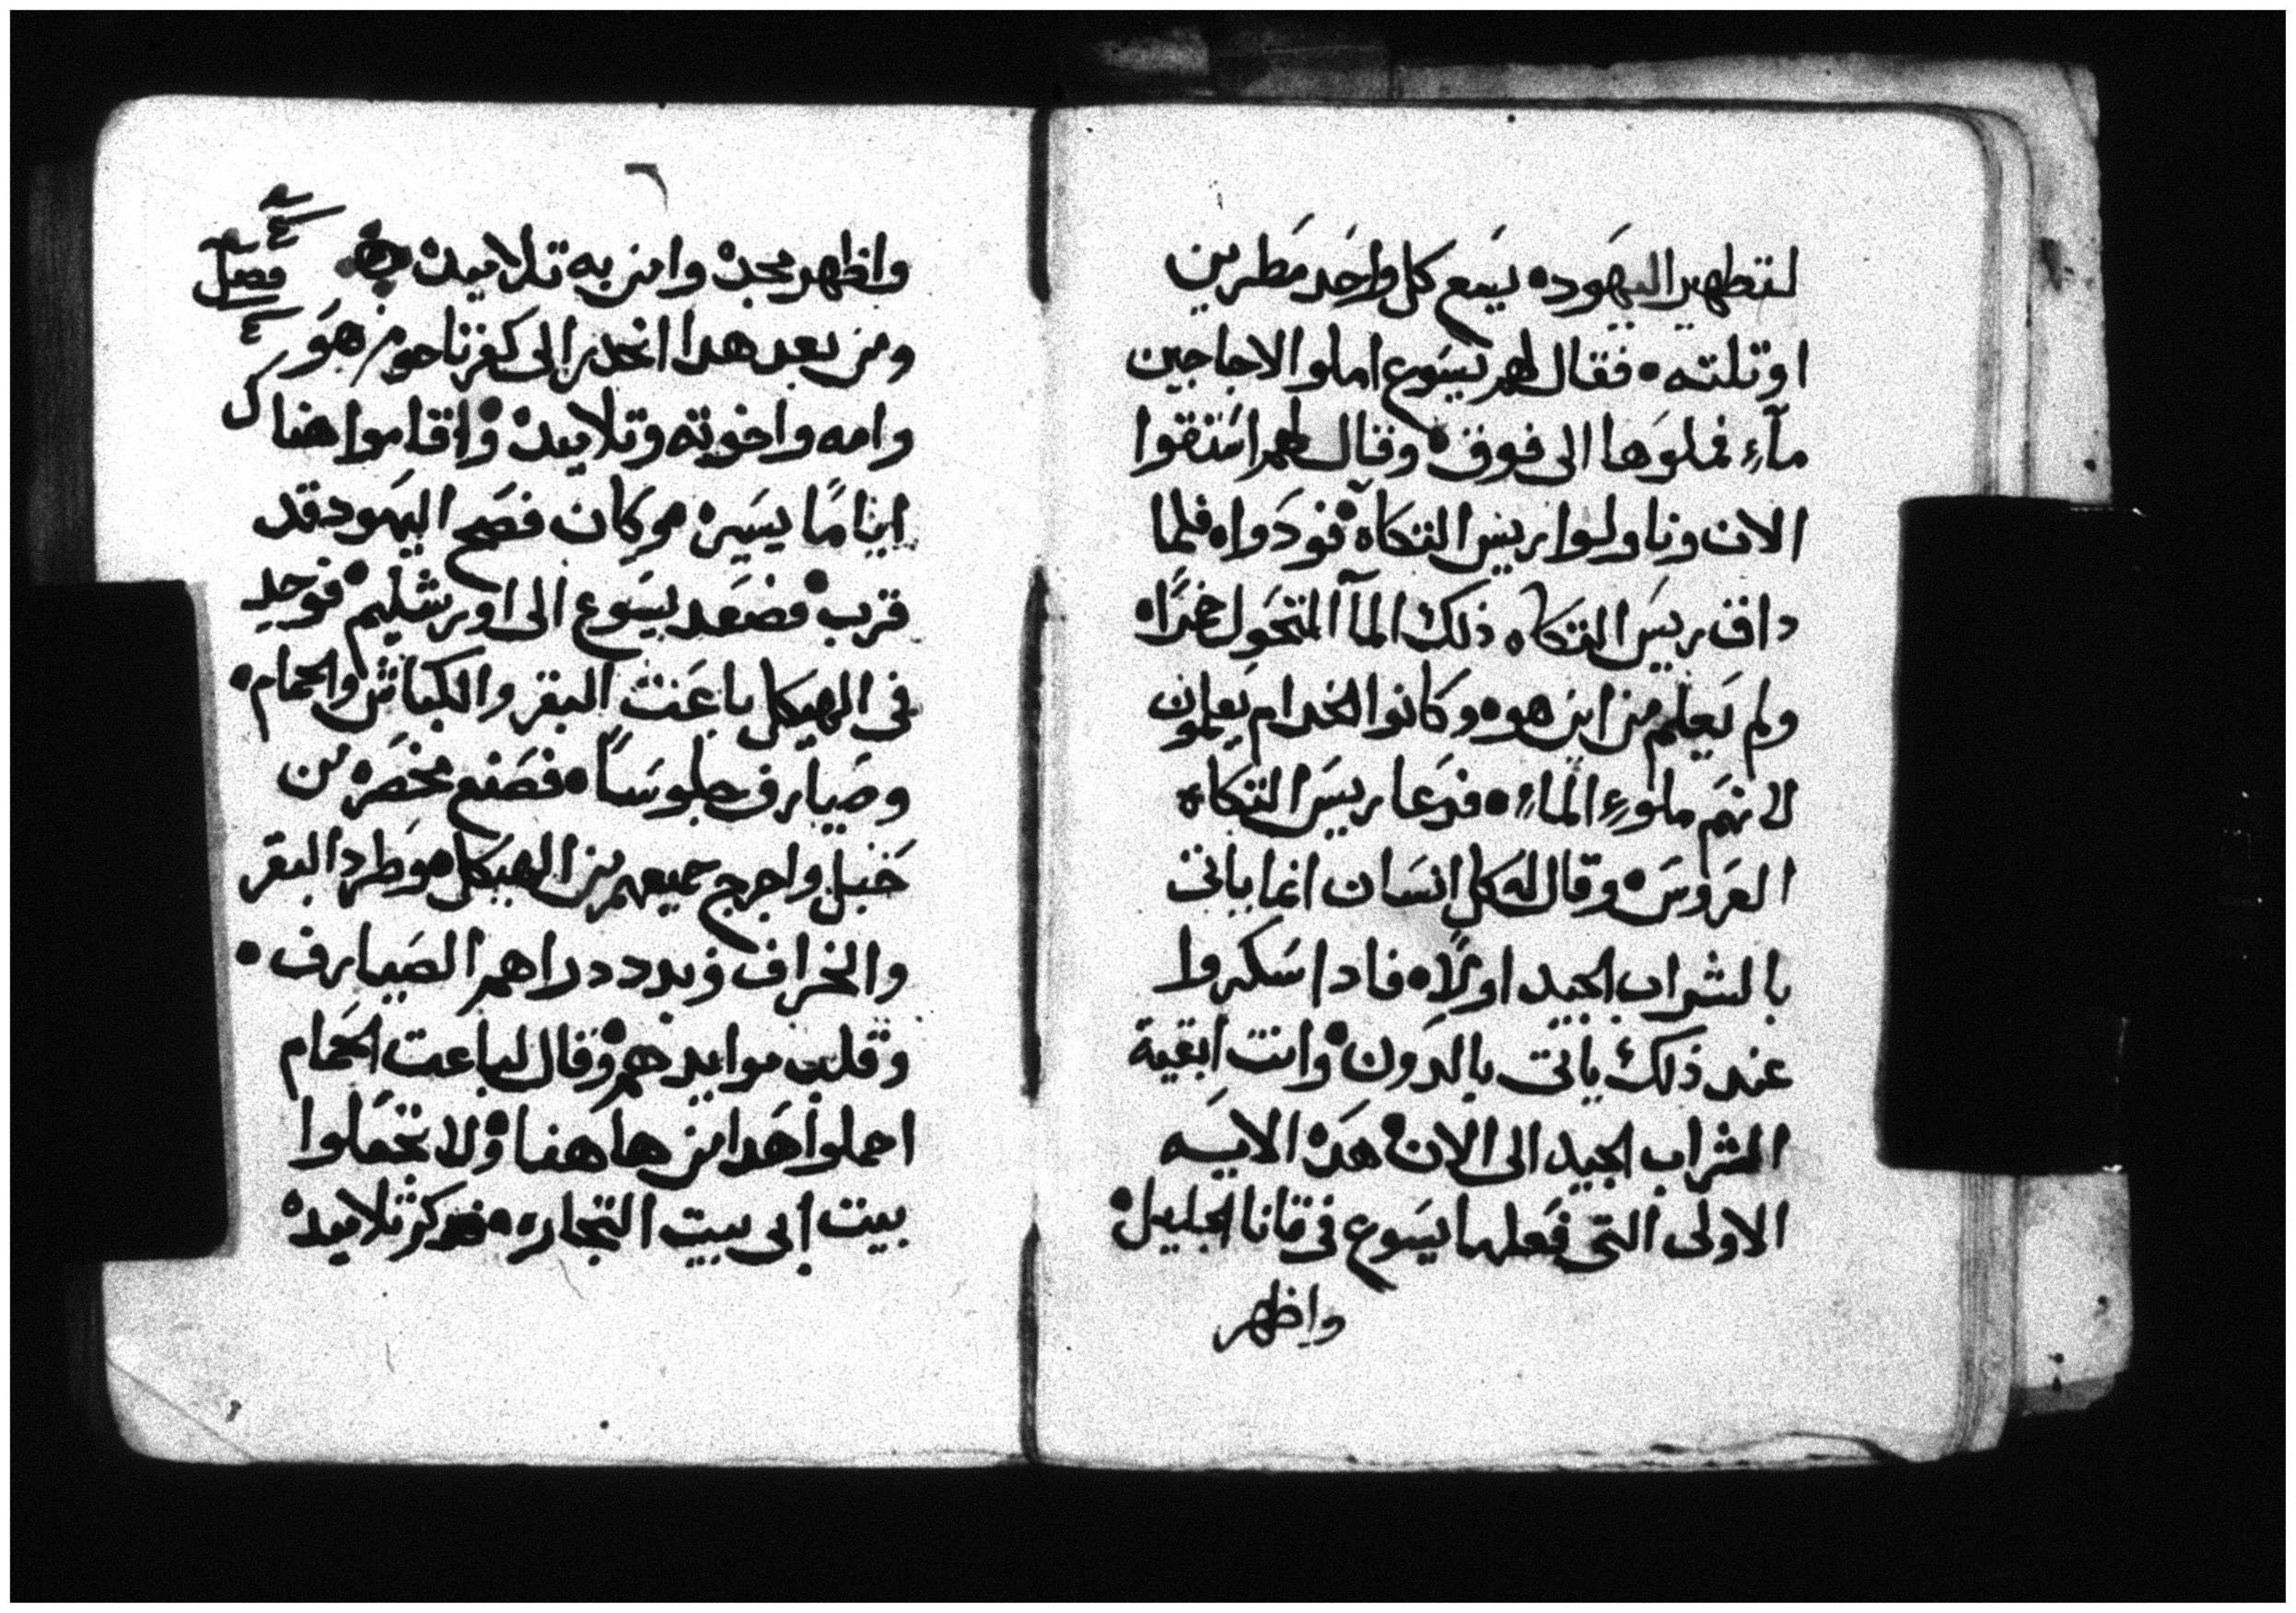 لتطهير اليهود ه يسع كل واحد مطرين
او تلته ه فقال لهم يسوع املوا الاجاجين
مآء فملوها الى فوق ه وقال لهم استقوا
الان وناولوا رييس التكاه فودواه فلما
داق رييس التكاه ذلك المآ المتحول خمرًا ه
ولم يعلم من اين هو ه وكانوا الخدام يعلمون
لانهم ملوء الماء ه فدعا رييس التكاه
العروس ه وقال له كل انسان انما ياتى
بالشراب الجيد اولًا ه فادا سكروا
عند ذلك ياتى بالدون ه وانت ابقية
الشراب الجيد الى الان ه هده الايه
الاولى التى فعلها يسوع فى قانا الجليل ه
واظهر
٦
واظهر مجده وامن به تلاميده
فصل
ومن بعد هدا انحدر الى كفرناحوم هو
وامه واخوته وتلاميده واقاموا هناك
ايامًا يسيره وكان فصح اليهود قد
قرب ه فصعد يسوع الى اورشليم ه فوجد
فى الهيكل باعت البقر والكباش والحمام ه
وصيارف جلوسًا ه فصنع مخصره من
حبل واخرج جميعهم من الهيكل وطرد البقر
والخراف وبدد دراهم الصيارف ه
وقلب موايدهم ه وقال لباعت الحمام
احملوا هدا من هاهنا ه ولا تجعلوا
بيت ابى بيت التجاره ه فدكر تلاميده